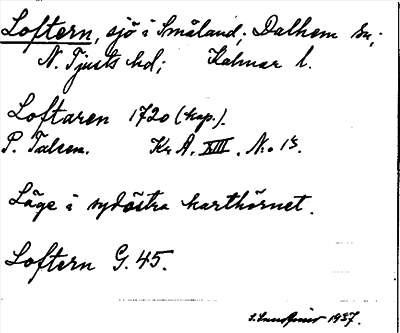 Loftern, sjö i Småland; Dalhem sn;
N. Tjusts hd; Kalmar l.
Loftaren 1720 (kop.).
P. Talsen. Kr A. XIII. No 13.
Läge i sydöstra karthörnet.
Loftern G. 45.
1937.